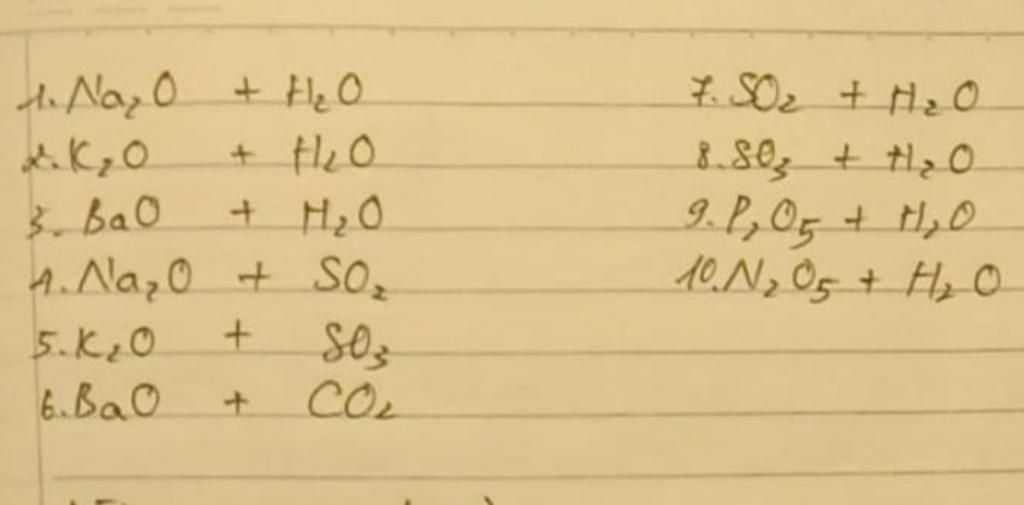 1. Na₂O + H₂O
2. K₂O + H₂O
3. BaO + H₂O
4. Na₂O + SO₂
5. K₂O + SO₃
6. BaO + CO₂
7. SO₂ + H₂O
8. SO₃ + H₂O
9. P₂O₅ + H₂O
10. N₂O₅ + H₂O